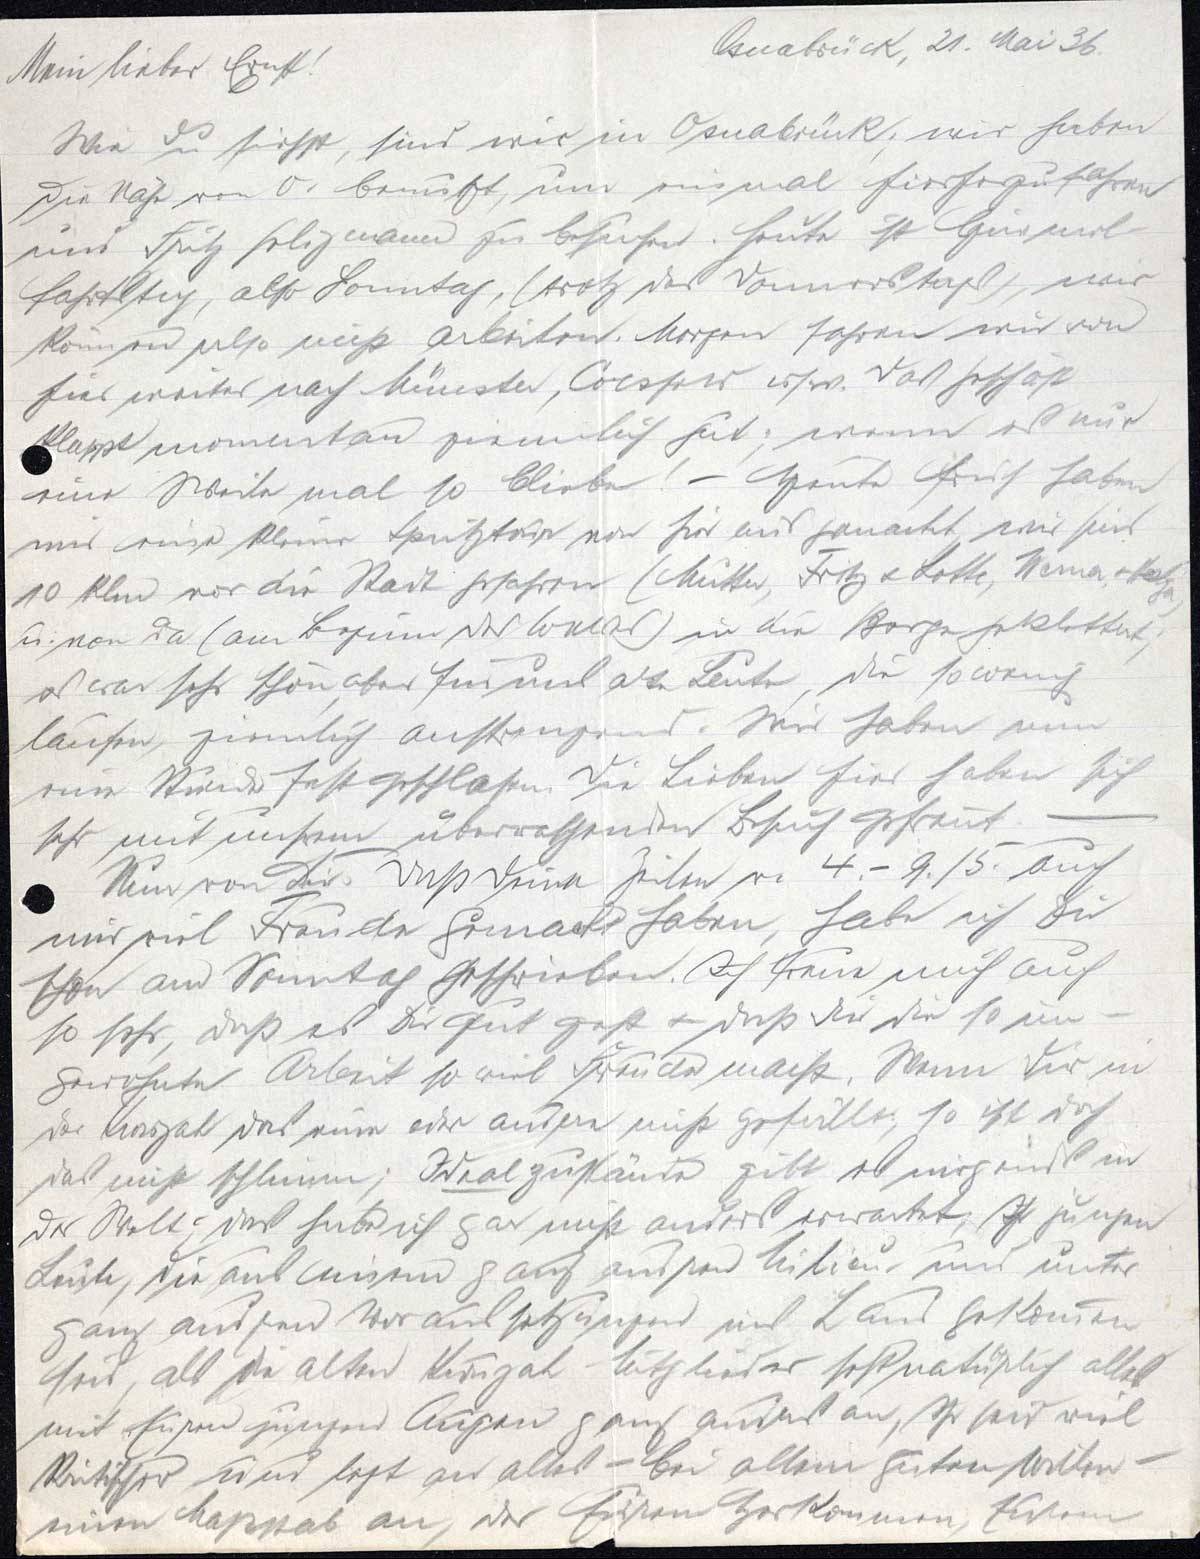 Osnabrück, 21. Mai 36.
Mein lieber Ernst!
Wie Du siehst, sind wir in Osnabrück; wir haben
die Nähe von O. benutzt, um einmal hierherzufahren
und Fritz Salzmann zu besuchen. Heute ist Himmel-
fahrtstag, also Sonntag, (trotz des Donnerstags), wir
können also nicht arbeiten. Morgen fahren wir von
hier weiter nach Münster, Coesfeld usw. Das Geschäft
klappt momentan ziemlich gut; wenn es nur
eine Weile mal so bliebe! – Heute früh haben
wir eine kleine Spritztour von hier aus gemacht, wir sind
10 klm vor die Stadt gefahren (Mutter, Fritz & Lotte, Werner,
u. von da (am Beginn des ) in die Berge geklettert;
es war sehr schön, aber für uns alte Leute, die so wenig
laufen, ziemlich anstrengend. Wir haben nun
eine Stunde fest geschlafen. Die Lieben hier haben sich
sehr mit unserem überraschenden Besuch gefreut. —
Nun von Dir. Daß Deine Zeilen v. 4.–9./5. auch
mir viel Freude gemacht haben, habe ich Dir
schon am Sonntag geschrieben. Ich freue mich auch
so sehr, daß es Dir gut geht & daß Dir die so un-
gewohnte Arbeit so viel Freude macht. Wenn Dir in
der das eine oder andere nicht gefällt, so ist doch
das nicht schlimm; Idealzustände gibt es nirgends in
der Welt; das habe ich gar nicht anders erwartet. Ihr jungen
Leute, die aus einem ganz anderen Milieu und unter
ganz anderen Voraussetzungen ins Land gekommen
seid, als die alten Mitglieder seht natürlich alles
mit Euren jungen Augen ganz anders an, Ihr seid viel
kritischer und legt an alles – bei allem guten Willen –
einen Maßstab an, der Eurem Herkommen, Eurem